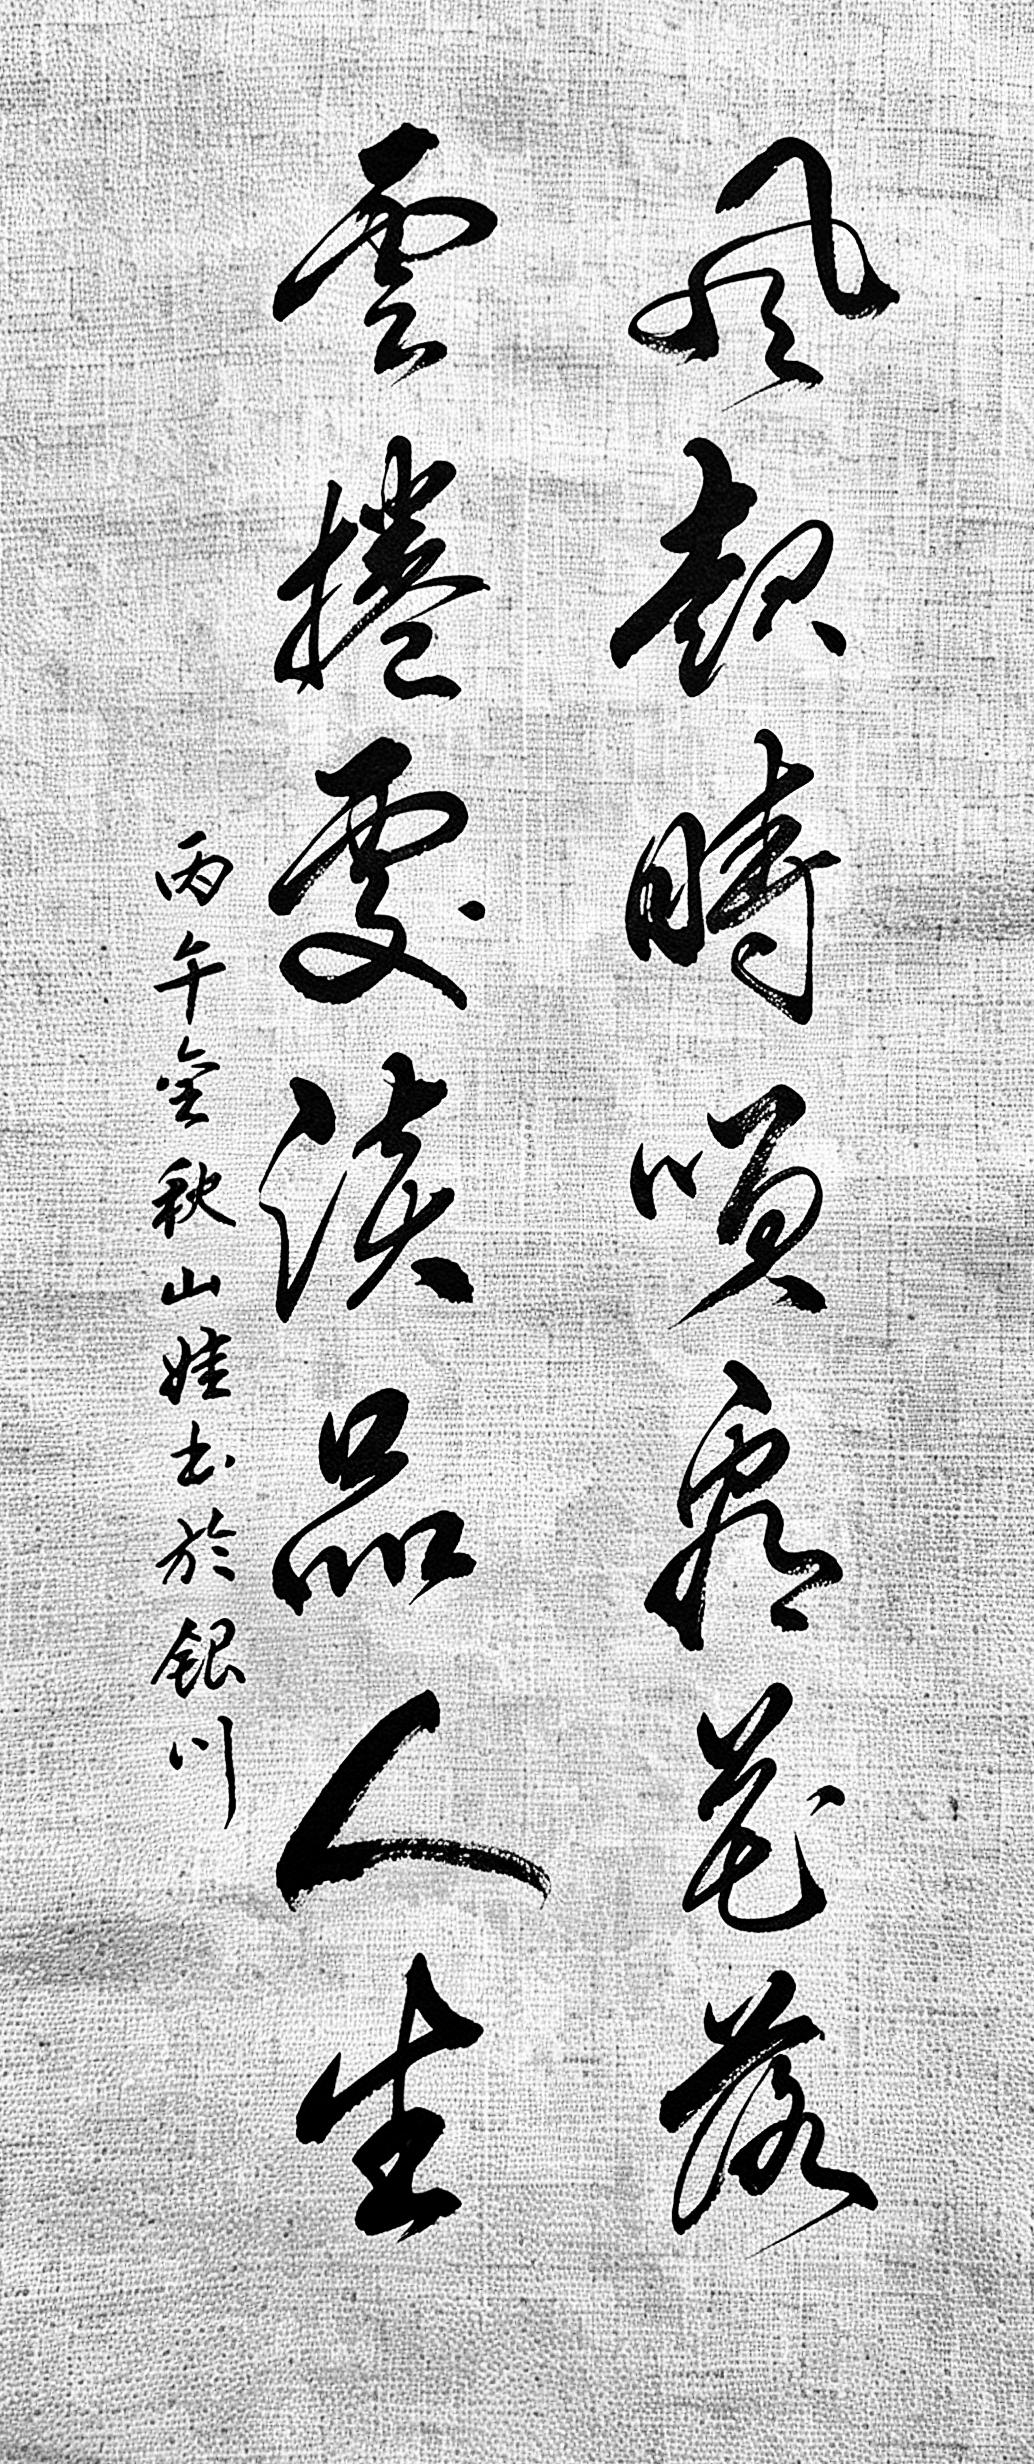 風起時嘆看花落
雲捲處淡品人生
丙午金秋山娃书於銀川